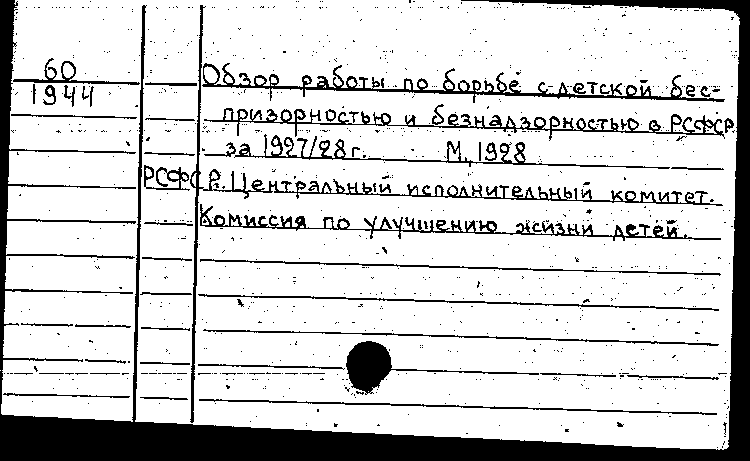 60
1944
Обзор работы по борьбе с детской бес-
призорностью и безнадзорностью в РСФСР
за 1927/28 г. М., 1928
РСФСР. Центральный исполнительный комитет.
Комиссия по улучшению жизни детей.